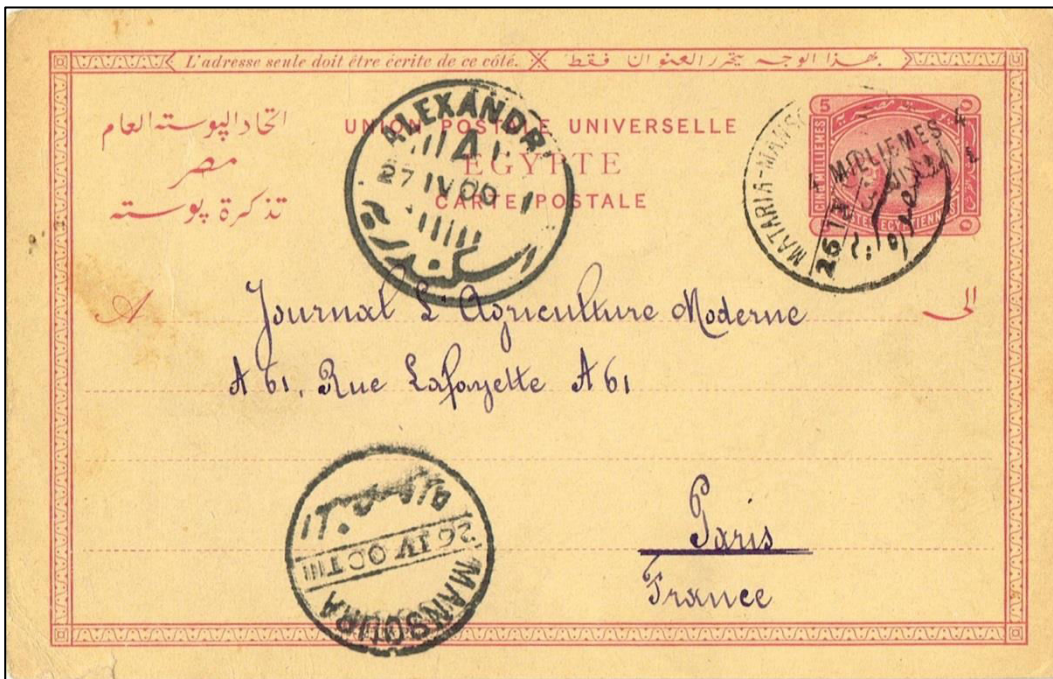 L'adresse seule doit être écrite de ce côté. بهذا الوجه يتحرر العنوان فقط
اتحاد البوسته العام
مصر
تذكرة بوسته
UNION POSTALE UNIVERSELLE
EGYPTE
CARTE POSTALE
ALEXANDR
A
27 IV 00
اسكندرية
5
CINQ MILLIEMES
POSTES EGYPTIENNES
4 MILLIEMES 4
MATARIA-MANSO
26 IV
A
الى
Journal L'Agriculture Moderne
A 61, Rue Lafayette A 61
Paris
France
26 IV 00 T III
MANSOURA